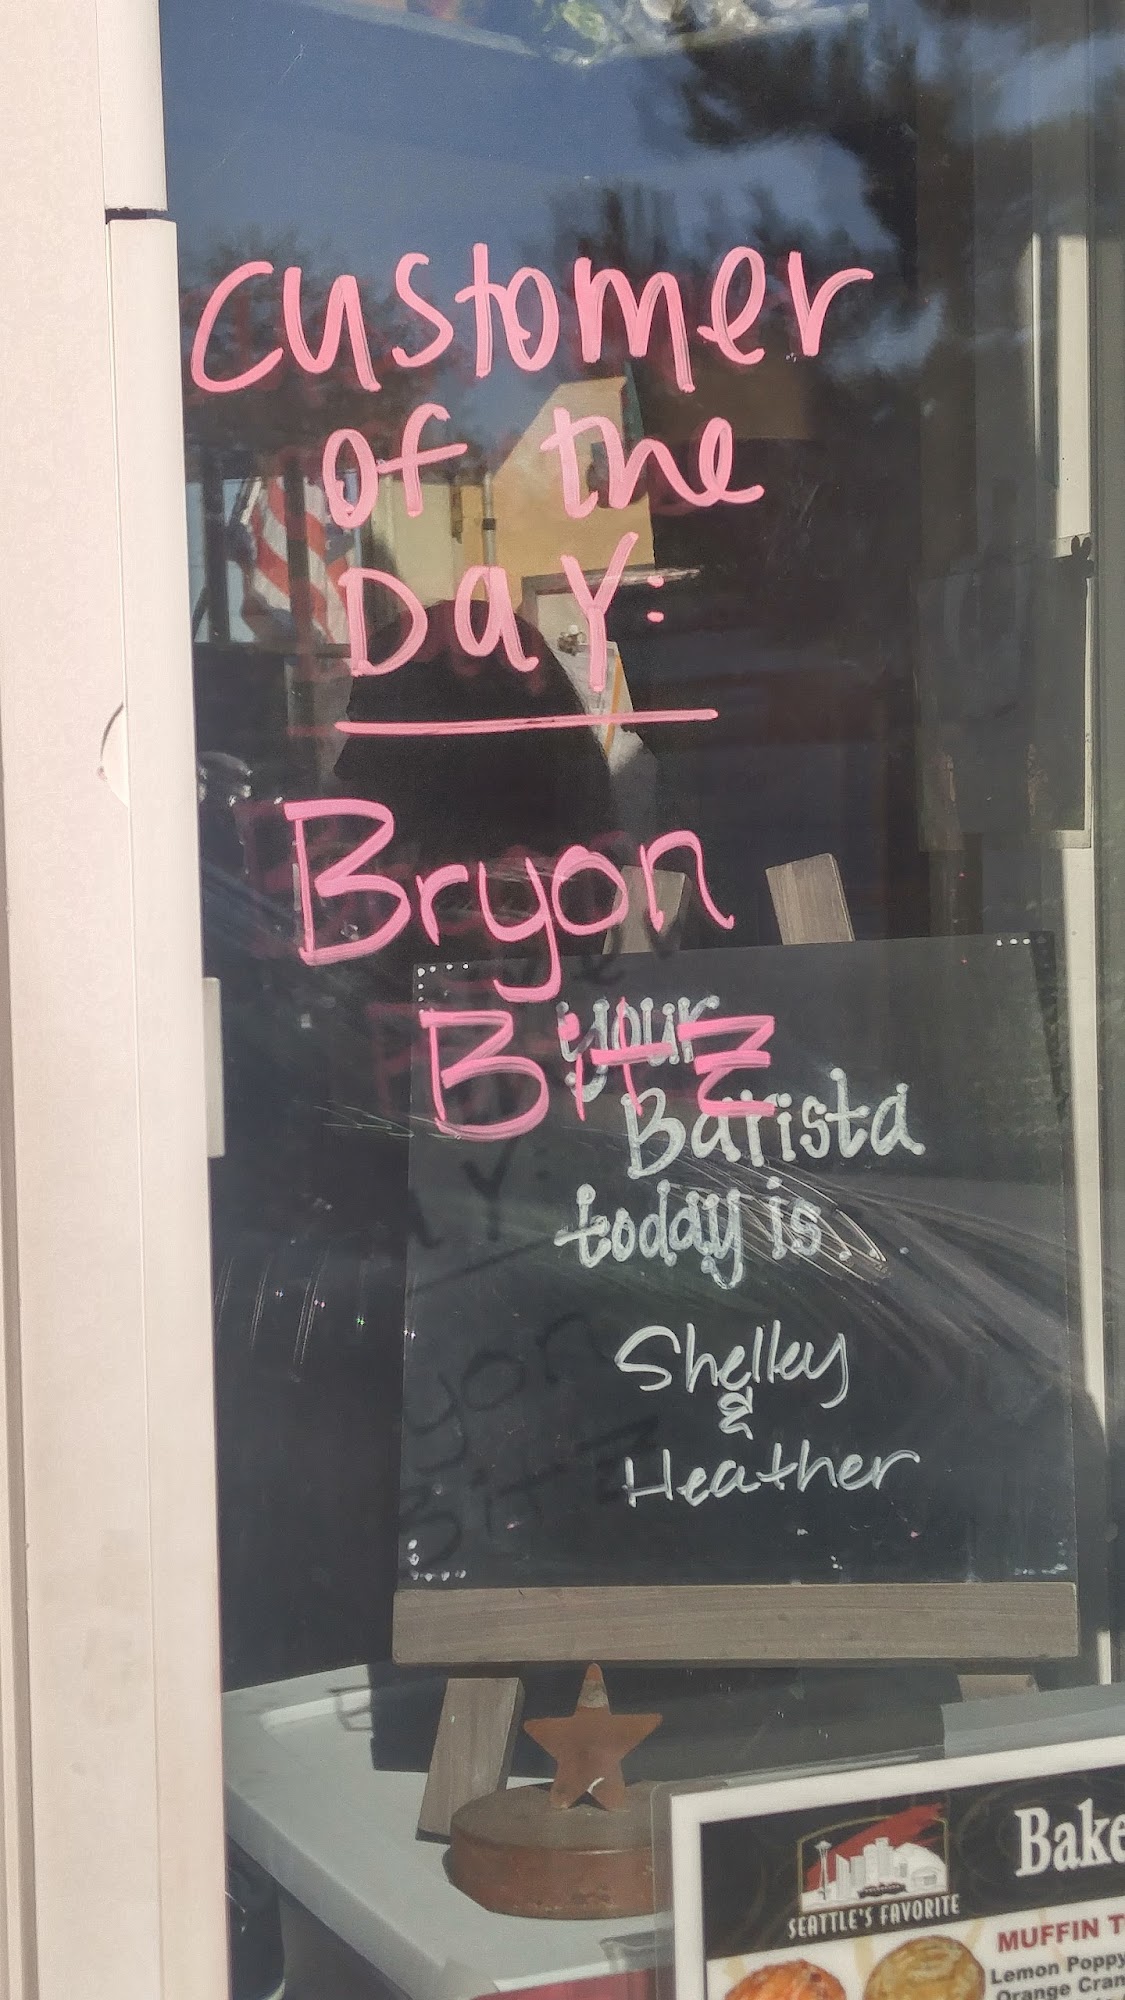 Customer
of the
Day:
Bryon
Bitz
your
Barista
today is
Shelley
&
Heather
SEATTLE'S FAVORITE
Bake
MUFFIN T
Lemon Poppy
Orange Cran